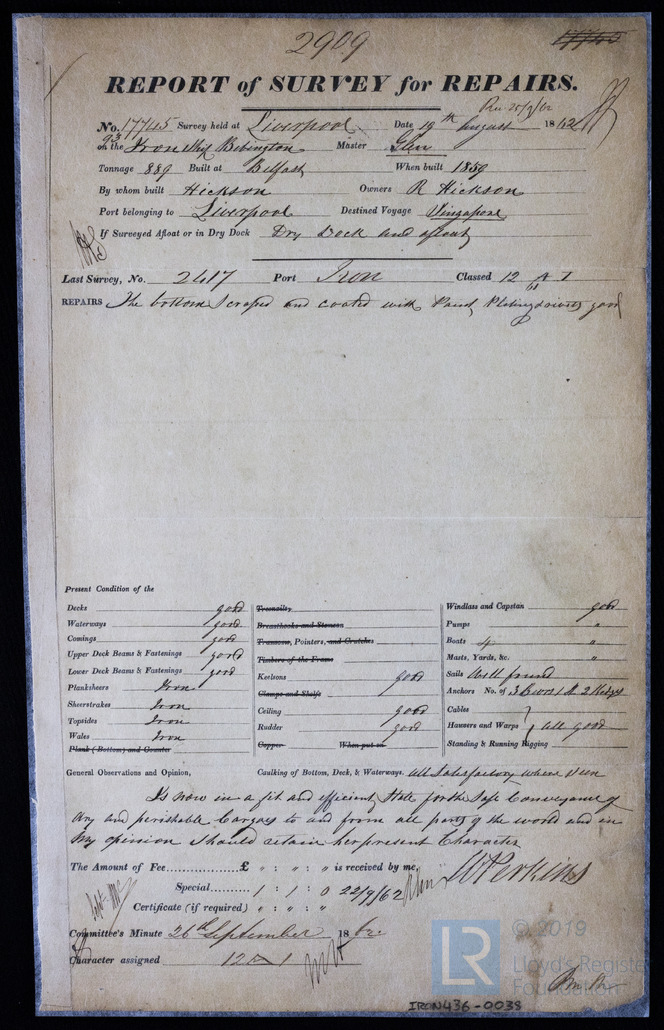 2909
REPORT of SURVEY for REPAIRS.
Rec 25/9/62
No. 17745 Survey held at Liverpool Date 19th August 1862
on the Iron Ship Bebington Master Glen
Tonnage 889 Built at Belfast When built 1859
By whom built Hickson Owners R Hickson
Port belonging to Liverpool Destined Voyage Singapore
If Surveyed Afloat or in Dry Dock Dry Dock and afloat
Last Survey, No. 2417 Port Iron Classed 12 A 1
REPAIRS The bottom scraped and coated with Paint, Plating & rivets good
Present Condition of the
Decks good
Waterways good
Comings good
Upper Deck Beams & Fastenings good
Lower Deck Beams & Fastenings good
Planksheers Iron
Sheerstrakes Iron
Topsides Iron
Wales Iron
Plank (Bottom) and Counter
Treenails
Breasthooks and Stemson
Transoms, Pointers, and Crutches
Timbers of the Frame
Keelsons good
Clamps and Shelfs
Ceiling good
Rudder good
Copper When put on
Windlass and Capstan good
Pumps "
Boats 4 "
Masts, Yards, &c. "
Sails Well found
Anchors No. of 3 Bowers & 2 Kedges
Cables
Hawsers and Warps all good
Standing & Running Rigging
General Observations and Opinion, Caulking of Bottom, Deck, & Waterways. all satisfactory where seen
Is now in a fit and efficient state for the safe Conveyance of
dry and perishable Cargoes to and from all parts of the world and in
my opinion should retain her present Character
The Amount of Fee £ " : " : " is received by me,
Special 1 : 1 : 0 22/9/62 W Perkins
Certificate (if required) " : " : "
Committee's Minute 26th September 1862
Character assigned 12 A 1
© 2019
Lloyd's Register
Foundation
LR
IRON436-0038